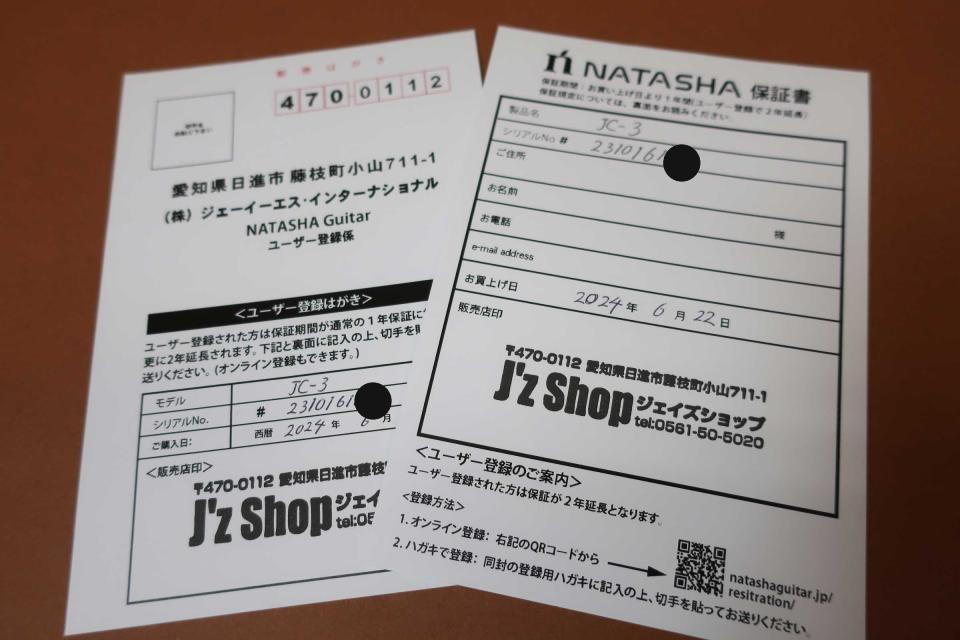 郵便はがき
4700112
愛知県日進市 藤枝町小山711-1
(株) ジェーイーエス・インターナショナル
NATASHA Guitar
ユーザー登録係
<ユーザー登録はがき>
ユーザー登録された方は保証期間が通常の1年保証に
更に2年延長されます。下記と裏面に記入の上、切手を貼
送りください。(オンライン登録もできます。)
モデル JC-3
シリアルNo. # 2310161
ご購入日: 西暦 2024 年 6 月
<販売店印>
〒470-0112 愛知県日進市藤枝
J'z Shop ジェイ
tel:05
NATASHA 保証書
保証期間:お買い上げ日より1年間(ユーザー登録で2年延長)
保証規定については、裏面をお読みください。
製品名 JC-3
シリアルNo # 2310161
ご住所
お名前
様
お電話
e-mail address
お買上げ日 2024 年 6 月 22 日
販売店印
〒470-0112 愛知県日進市藤枝町小山711-1
J'z Shop ジェイズショップ
tel:0561-50-5020
<ユーザー登録のご案内>
ユーザー登録された方は保証が2年延長となります。
<登録方法>
1. オンライン登録: 右記のQRコードから
2. ハガキで登録: 同封の登録用ハガキに記入の上、切手を貼ってお送りください。
natashaguitar.jp/
resitration/